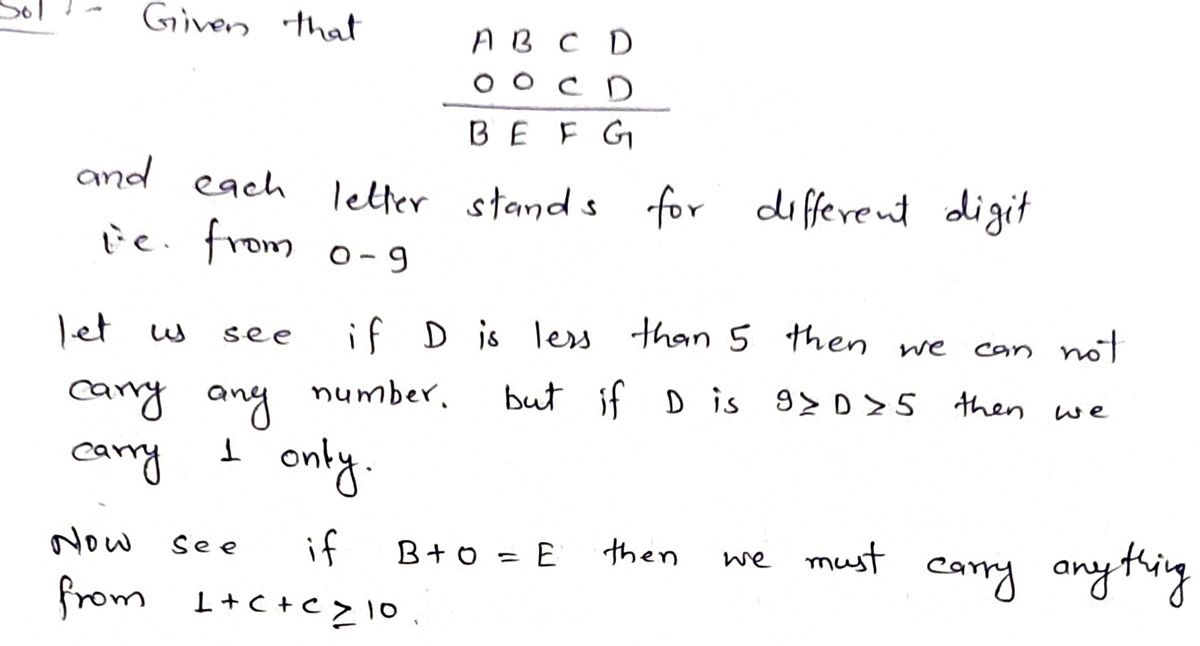 Sol :- Given that
A B C D
0 0 C D
B E F G
and each letter stands for different digit
i.e. from 0-9
let us see if D is less than 5 then we can not
carry any number. but if D is 9≥D≥5 then we
carry 1 only.
Now see if B+0 = E then we must carry anything
from 1+C+C≥10.